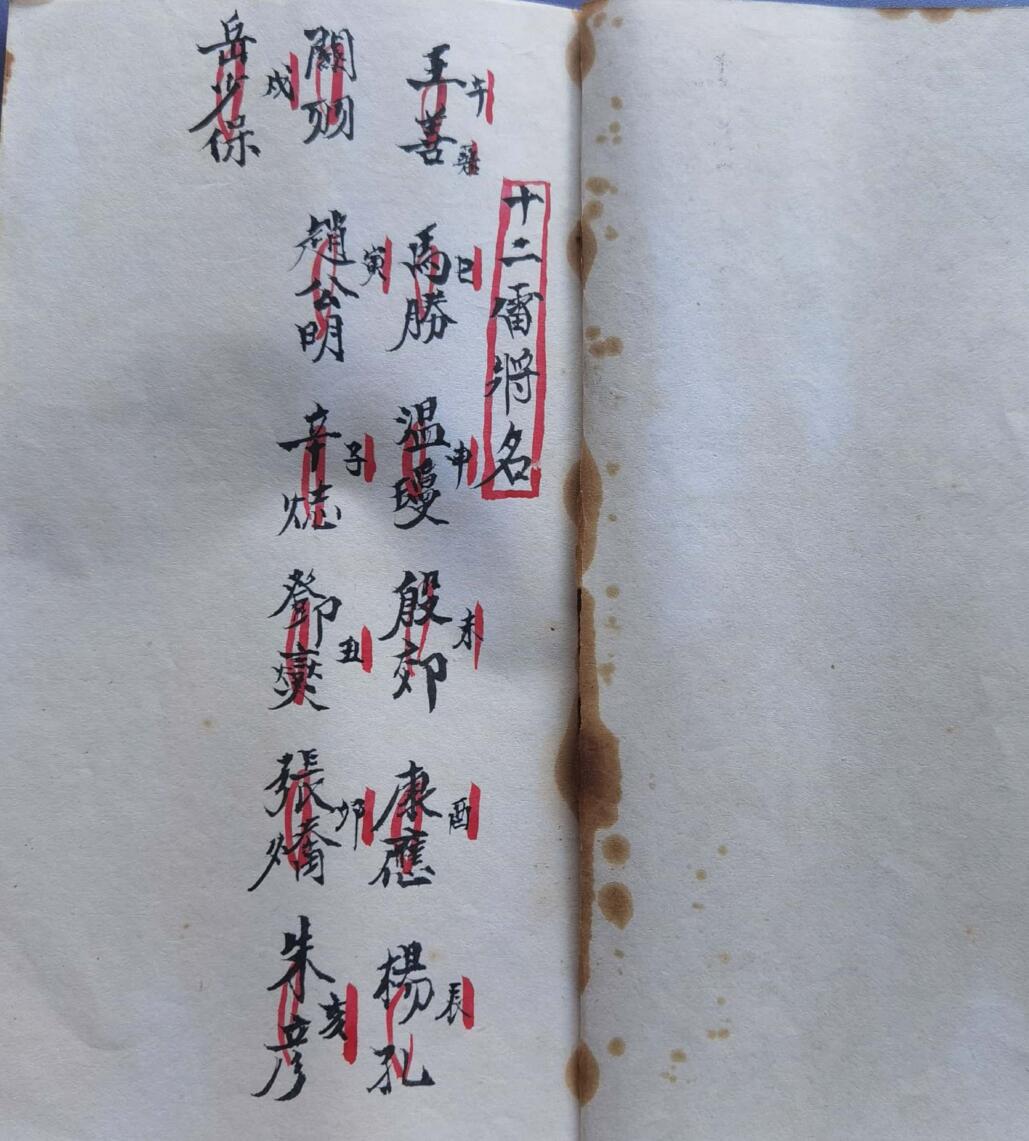 十二雷將名
王善 午
馬勝 巳
溫瓊 申
殷郊 未
康應 酉
楊孔 辰
關羽
趙公明 寅
辛 子
鄧燮 丑
張燆 卯
朱彥 亥
岳少保 戌